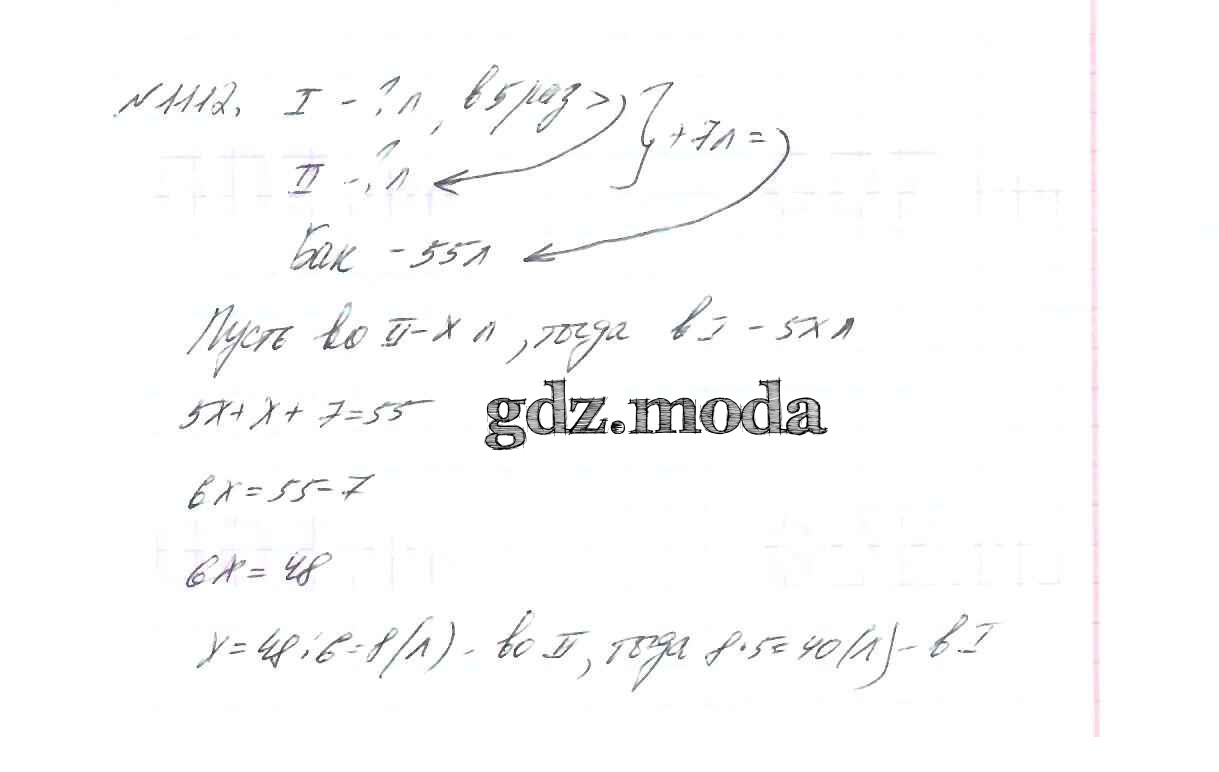 №1112. I - ? л, в 5 раз > } + 7л =
II - ? л
Бак - 55л
Пусть во II - x л, тогда в I - 5x л
5x + x + 7 = 55
gdz.moda
6x = 55 - 7
6x = 48
x = 48 : 6 = 8 (л) - во II, тогда 8 · 5 = 40 (л) - в I